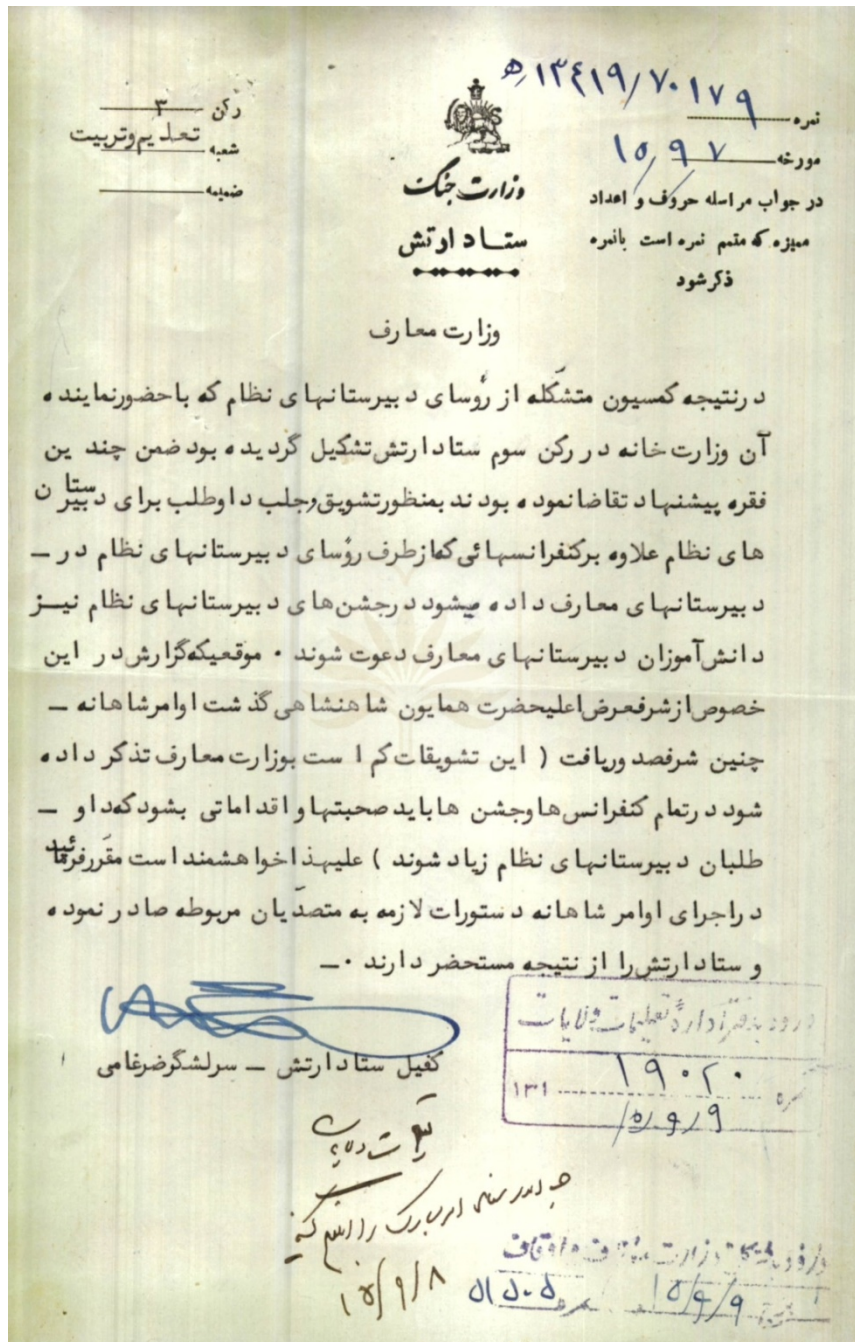 نمره ۱۳۴۱۹/۷۰۱۷۹ ه
مورخه ۱۵/۹/۷
در جواب مراسله حروف و اعداد
ممیزه که متمم نمره است بانمره
ذکر شود
وزارت جنگ
ستاد ارتش
رکن ۳
شعبه تعلیم وتربیت
ضمیمه
وزارت معارف
درنتیجه کمسیون متشکله از رؤسای دبیرستانهای نظام که باحضورنماینده
آن وزارت خانه در رکن سوم ستادارتش تشکیل گردیده بود ضمن چندین
فقره پیشنهاد تقاضانموده بودند بمنظورتشویق وجلب داوطلب برای دبیرستان
های نظام علاوه برکنفرانسهائی که ازطرف رؤسای دبیرستانهای نظام در ـ
دبیرستانهای معارف داده میشود درجشن های دبیرستانهای نظام نیـز
دانش آموزان دبیرستانهای معارف دعوت شوند ۰ موقعیکه گزارش در این
خصوص ازشرفعرض اعلیحضرت همایون شاهنشاهی گذشت اوامرشاهانه ـ
چنین شرفصدوریافت ( این تشویقات کم است بوزارت معارف تذکر داده
شود درتمام کنفرانس هاوجشن هاباید صحبتها و اقداماتی بشود که داو ـ
طلبان دبیرستانهای نظام زیاد شوند ) علیهذا خواهشمند است مقّررفرمائید
دراجرای اوامر شاهانه دستورات لازمه به متصدّیان مربوطه صادر نموده
و ستادارتش را از نتیجه مستحضر دارند ۰ـ
کفیل ستادارتش ـ سرلشگرضرغامی
ورود بدفتر ادارهٔ تعلیمات ولایات
نمره ۱۹۰۲۰
۱۳۱ ۱۵/۹/۹
را ابلاغ کنید
۱۵/۹/۸
وزارت معارف و اوقاف
۱۵/۹/۹ نمره ۵۱۵۰۵